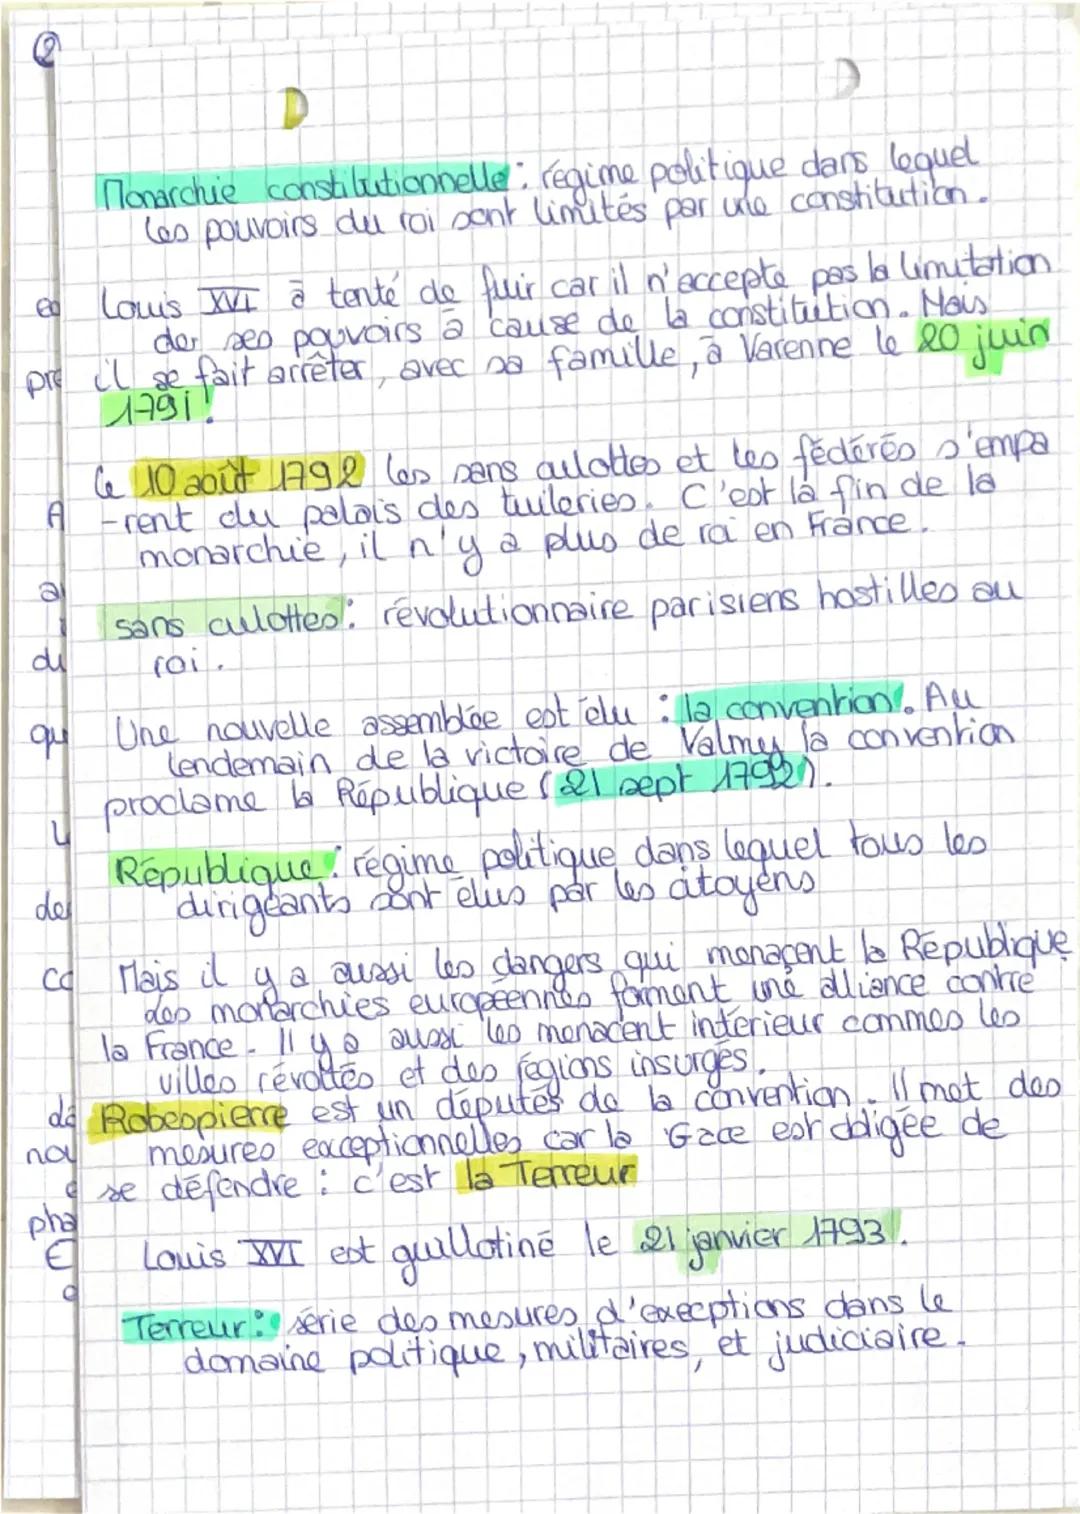 2
Monarchie constitutionnelle : régime politique dans lequel
les pouvoirs du roi sont limités par une constitution.
Louis XVI à tenté de fuir car il n'accepte pas la limitation
der ses pouvoirs à cause de la constitution. Mais
il se fait arrêter, avec sa famille, à Varenne le 20 juin
1791.
Le 10 août 1792 les sans culottes et les fédérés s'empa
-rent du palais des tuileries. C'est la fin de la
monarchie, il n'y a plus de roi en France.
sans culottes : révolutionnaire parisiens hostilles au
roi.
Une nouvelle assemblée est élu : la convention. Au
lendemain de la victoire de Valmy la convention
proclame la République (21 sept 1792).
République : régime politique dans lequel tous les
dirigeants sont élus par les citoyens
Mais il y a aussi les dangers qui menaçent la République
des monarchies européennes forment une alliance contre
la France. Il y a aussi les menacent intérieur commes les
villes révoltés et des régions insurgés.
Robespierre est un députés de la convention. Il met des
mesures exceptionnelles car la est obligée de
se défendre : c'est la Terreur
Louis XVI est guillotiné le 21 janvier 1793.
Terreur : série des mesures d'exeeptions dans le
domaine politique, militaires, et judiciaire.